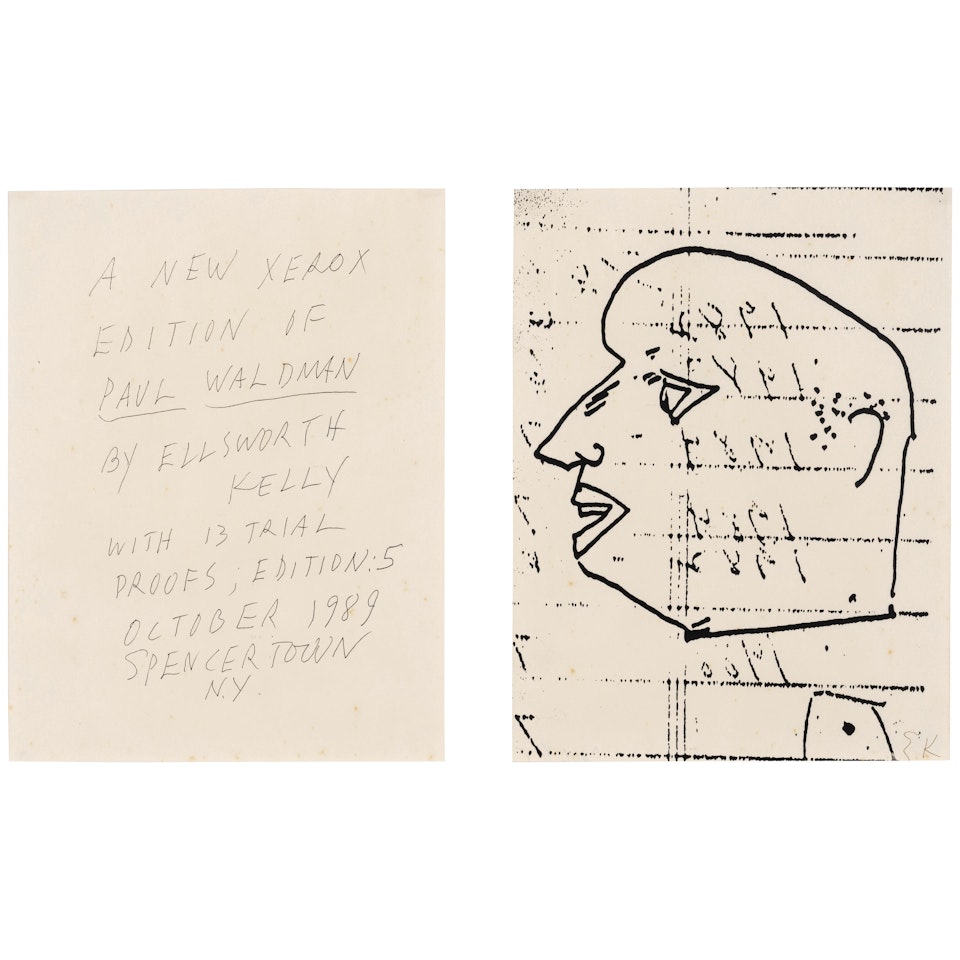 A NEW XEROX
EDITION OF
PAUL WALDMAN
BY ELLSWORTH
KELLY
WITH 13 TRIAL
PROOFS; EDITION:5
OCTOBER 1989
SPENCERTOWN
N.Y.
EK